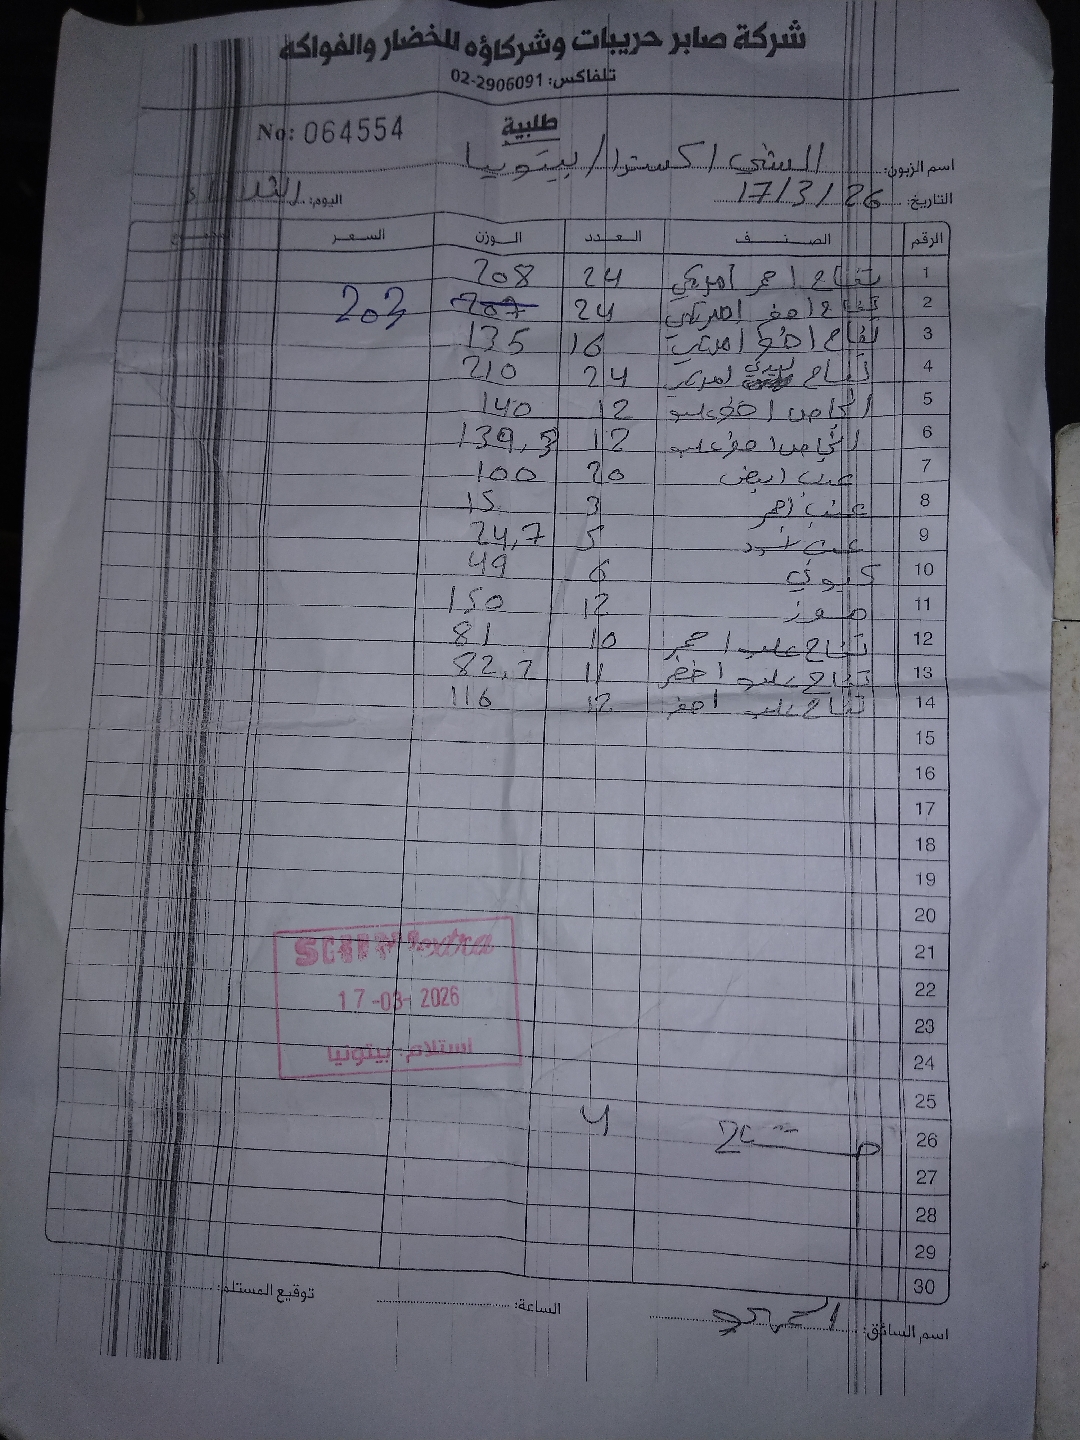 شركة صابر حريبات وشركاؤه للخضار والفواكه
تلفاكس: 02-2906091
طلبية
No: 064554
اسم الزبون: السني اكسترا / بيتونيا
التاريخ: 17/3/26 اليوم: الثلاثاء
الرقم الصنف العدد الوزن السعر المجموع
1 تفاح احمر امريكي 24 208
2 تفاح اصفر امريكي 24 207 203
3 تفاح اخضر امريكي 16 135
4 تفاح امريكي 24 210
5 اجاص اخضر علب 12 140
6 اجاص اصفر علب 12 139,5
7 عنب ابيض 20 100
8 عنب احمر 3 15
9 عنب اسود 5 24,7
10 كيوي 6 49
11 موز 12 150
12 تفاح علب احمر 10 81
13 تفاح علب اخضر 11 82,2
14 تفاح علب اصفر 12 116
15
16
17
18
19
20
21
22
23
24
25
26 4
27
28
29
30
extra
17-03-2026
استلام: بيتونيا
اسم السائق: الساعة: توقيع المستلم: